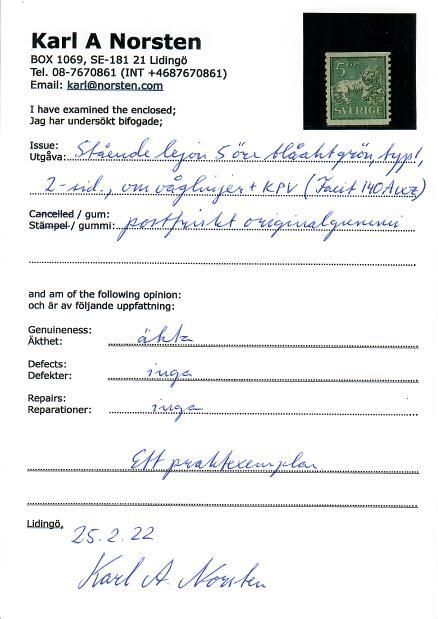 Karl A Norsten
BOX 1069, SE-181 21 Lidingö
Tel. 08-7670861 (INT +4687670861)
Email: karl@norsten.com
5 ÖRE
SVERIGE
I have examined the enclosed;
Jag har undersökt bifogade;
Issue:
Utgåva: Stående lejon 5 öre blåaktgrön, typ 1,
2-sid., om våglinjer + KPV (Facit 140Acxz)
Cancelled / gum:
Stämpel / gummi: postfriskt originalgummi
and am of the following opinion:
och är av följande uppfattning:
Genuineness:
Äkthet: äkta
Defects:
Defekter: inga
Repairs:
Reparationer: inga
Ett praktexemplar
Lidingö, 25.2.22
Karl A. Norsten